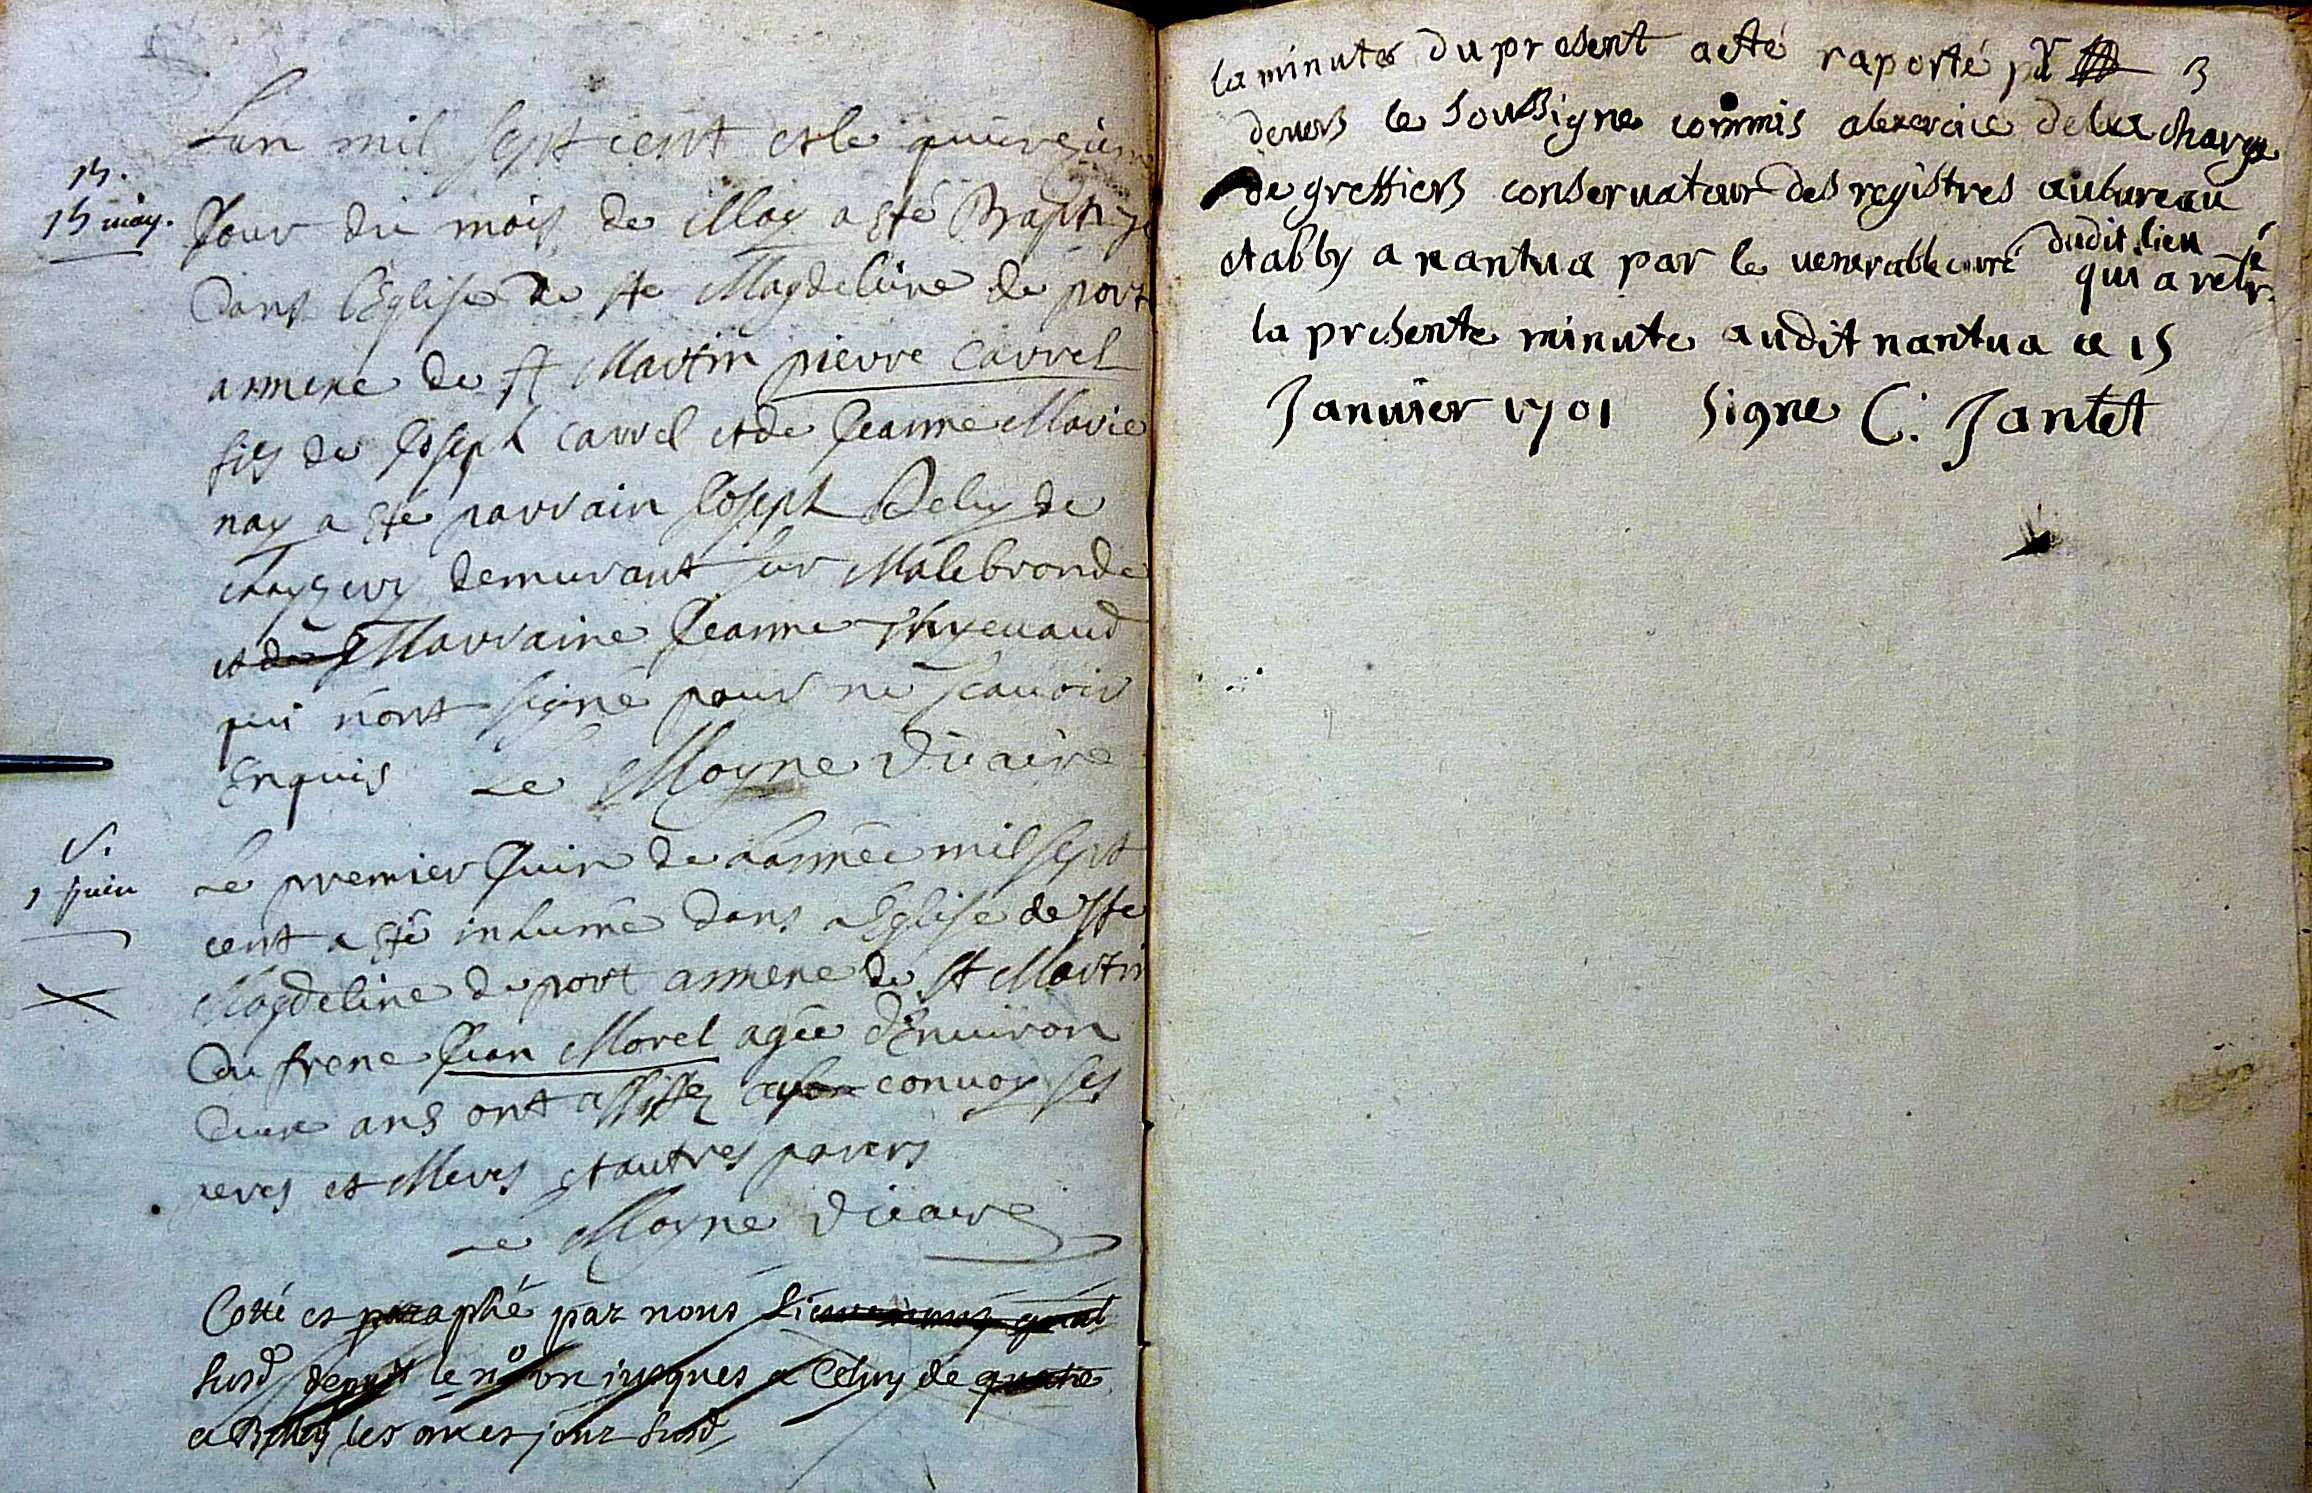 Lan mil sept cent et le quinzeiem
B.
15 may.
Jour du mois de May a esté Baptizé
dans l'Eglise de ste Magdeleine de port
annexe de st Martin pierre Carrel
fils de Joseph Carrel et de Jeanne Marie
nay a esté parrain Joseph Deluy de
demurant sur Malebronde
et Marraine Jeanne
qui n'ont signé pour ne scauoir
Enquis Le Moyne Vicaire
S.
1 juin
Le premier Juin de Lannée mil sept
cent a esté inhumé dans lEglise de ste
Magdeline de port annexe de st Martin
du frene Jean Morel agée d'Enuiron
deux ans ont assisté convoy ses
peres et Meres et autres parens
Le Moyne Vicaire
Cotté et paraphé par nous
susd depuis le no un jusques a Celuy de quatre
a Belley les onze jour susd
la minute du present acte raporté pr 3
devers le soussigne commis alexercice de la charge
de greffiers conservateur des registres au bureau
etably a nantua par le venerable curé dudit lieu
qui a retiré
la presente minute audit nantua ce 15
Janvier 1701 Signe C. Jantet